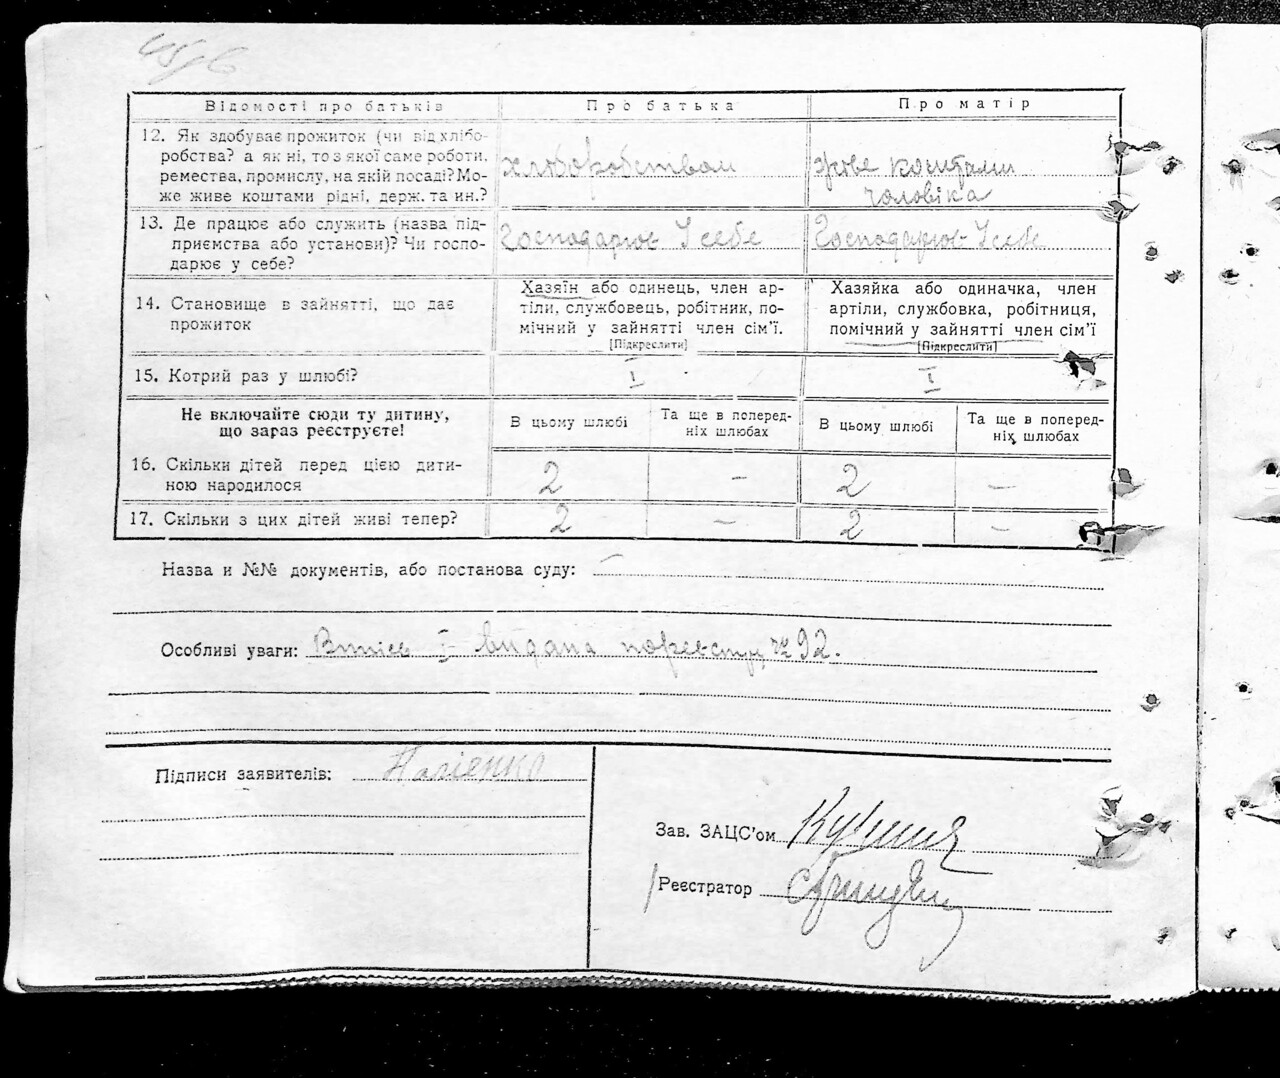 Відомості про батьків Про батька Про матір
12. Як здобуває прожиток (чи від хлібо-
робства? а як ні, то з якої саме роботи,
ремества, промислу, на якій посаді? Мо-
же живе коштами рідні, держ. та ин.?
хліборобством
живе коштами
чоловіка
13. Де працює або служить (назва під-
приємства або установи)? Чи госпо-
дарює у себе?
Господарює У себе
Господарює У себе
14. Становище в зайнятті, що дає
прожиток
Хазяїн або одинець, член ар-
тіли, службовець, робітник, по-
мічний у зайнятті член сім'ї.
[Підкреслити]
Хазяйка або одиначка, член
артіли, службовка, робітниця,
помічний у зайнятті член сім'ї
[Підкреслити]
15. Котрий раз у шлюбі? I I
Не включайте сюди ту дитину,
що зараз реєструєте!
В цьому шлюбі
Та ще в поперед-
ніх шлюбах
В цьому шлюбі
Та ще в поперед-
ніх шлюбах
16. Скільки дітей перед цією дити-
ною народилося
2 – 2 –
17. Скільки з цих дітей живі тепер? 2 – 2 –
Назва и №№ документів, або постанова суду: –
Особливі уваги: видана по реєстру № 92.
Підписи заявителів:
Зав. ЗАЦС'ом
Реєстратор